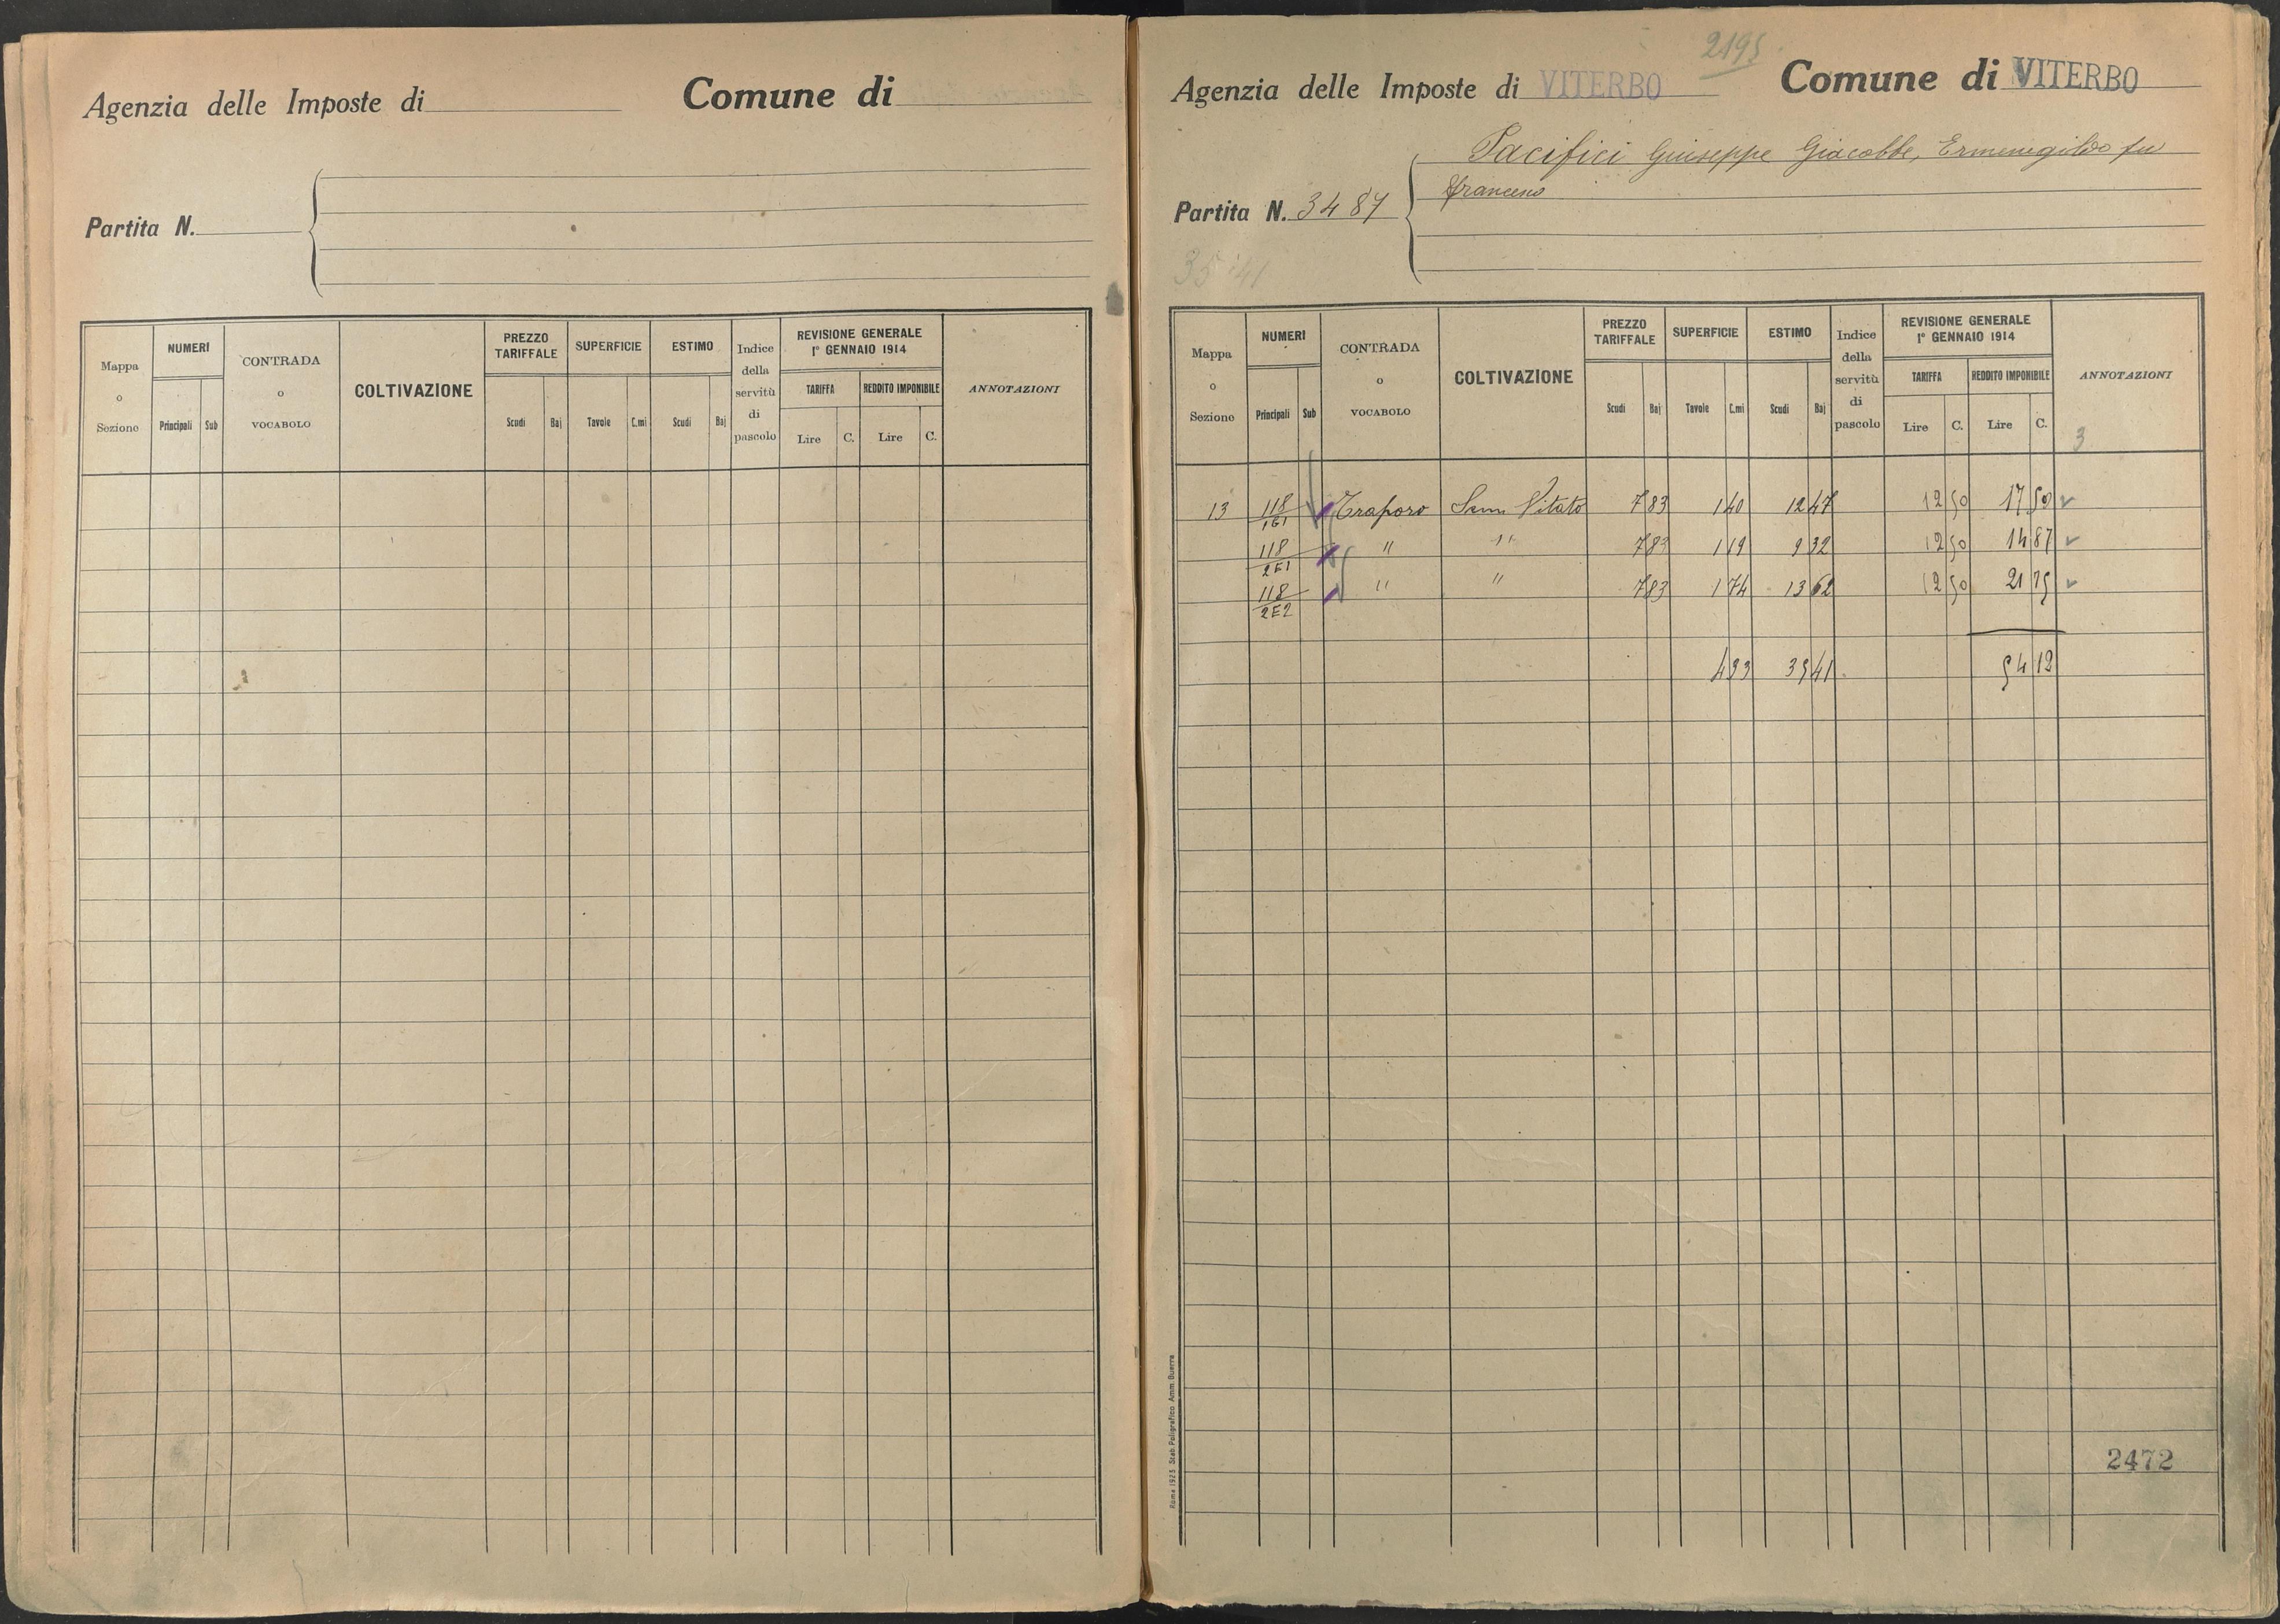 Agenzia delle Imposte di Comune di
Partita N.
Mappa o Sezione NUMERI CONTRADA o VOCABOLO COLTIVAZIONE PREZZO TARIFFALE SUPERFICIE ESTIMO Indice della servitù di pascolo REVISIONE GENERALE 1° GENNAIO 1914 ANNOTAZIONI
TARIFFA REDDITO IMPONIBILE
Principali Sub Scudi Baj Tavole C.mi Scudi Baj Lire C. Lire C.
2195
Agenzia delle Imposte di VITERBO Comune di VITERBO
Pacifici Giuseppe Giacobbe, Ermenegildo fu
Francesco
Partita N. 3487
35 41
Mappa o Sezione NUMERI CONTRADA o VOCABOLO COLTIVAZIONE PREZZO TARIFFALE SUPERFICIE ESTIMO Indice della servitù di pascolo REVISIONE GENERALE 1° GENNAIO 1914 ANNOTAZIONI
TARIFFA REDDITO IMPONIBILE
Principali Sub Scudi Baj Tavole C.mi Scudi Baj Lire C. Lire C.
3
13 118/161 Traporo Sem Vitato 7 83 1 40 12 47 12 50 17 50
118/2E1 " " 7 83 1 19 9 32 12 50 14 87
118/2E2 " " 7 83 1 74 13 62 12 50 21 75
4 33 35 41 54 12
2472
Roma 1925 Stab. Poligrafico Amm. Guerra